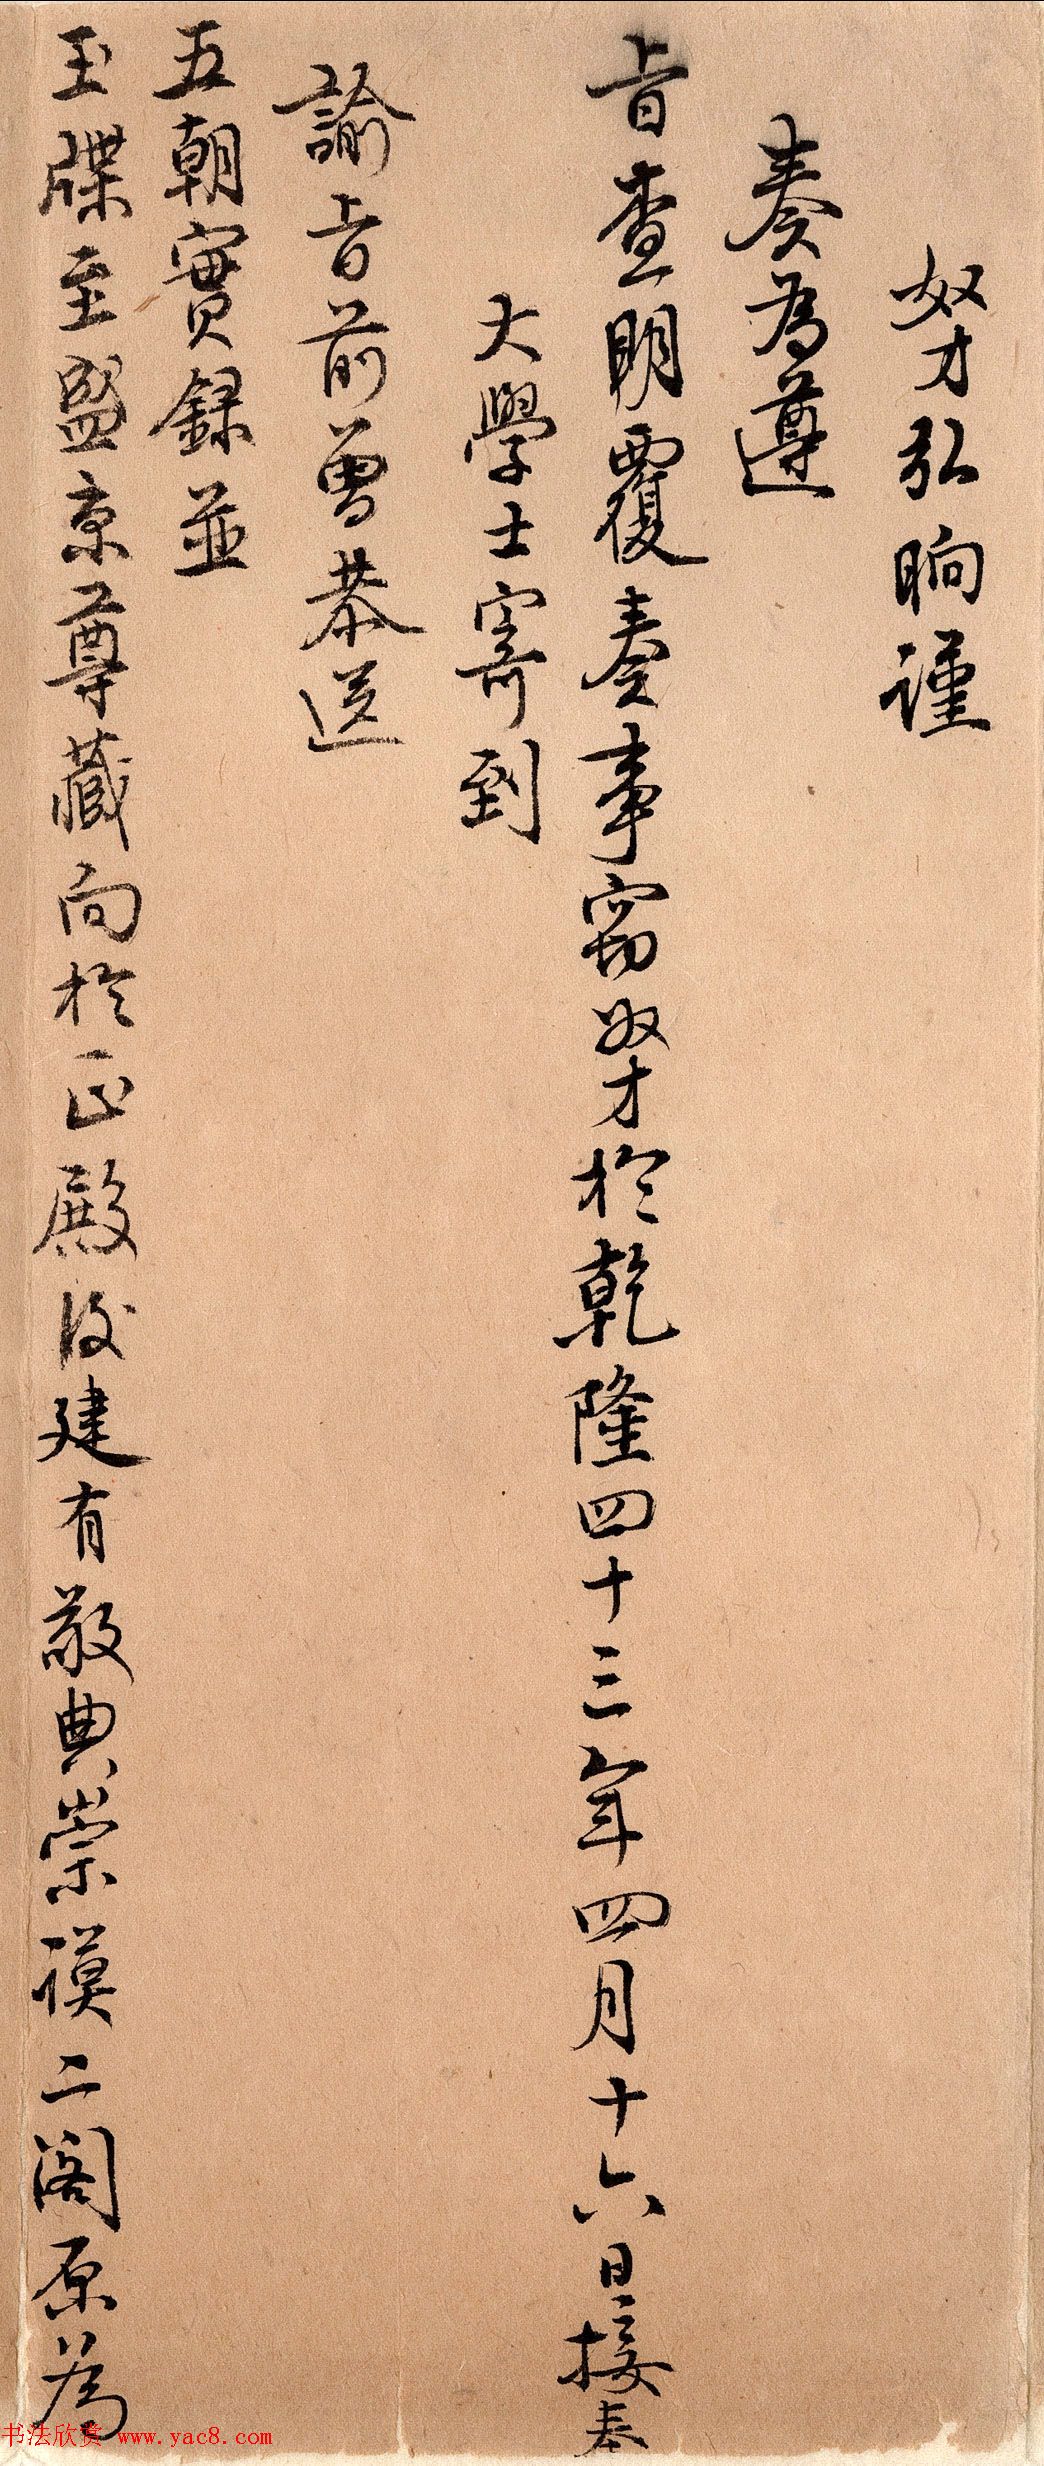 奴才弘晌謹
奏為遵
旨查明覆奏事竊奴才於乾隆四十三年四月十六日接奉
大學士寄到
諭旨前曾恭送
五朝實錄並
玉牒至盛京尊藏向於正殿後建有敬典崇謨二閣原為
书法欣赏 www.yac8.com